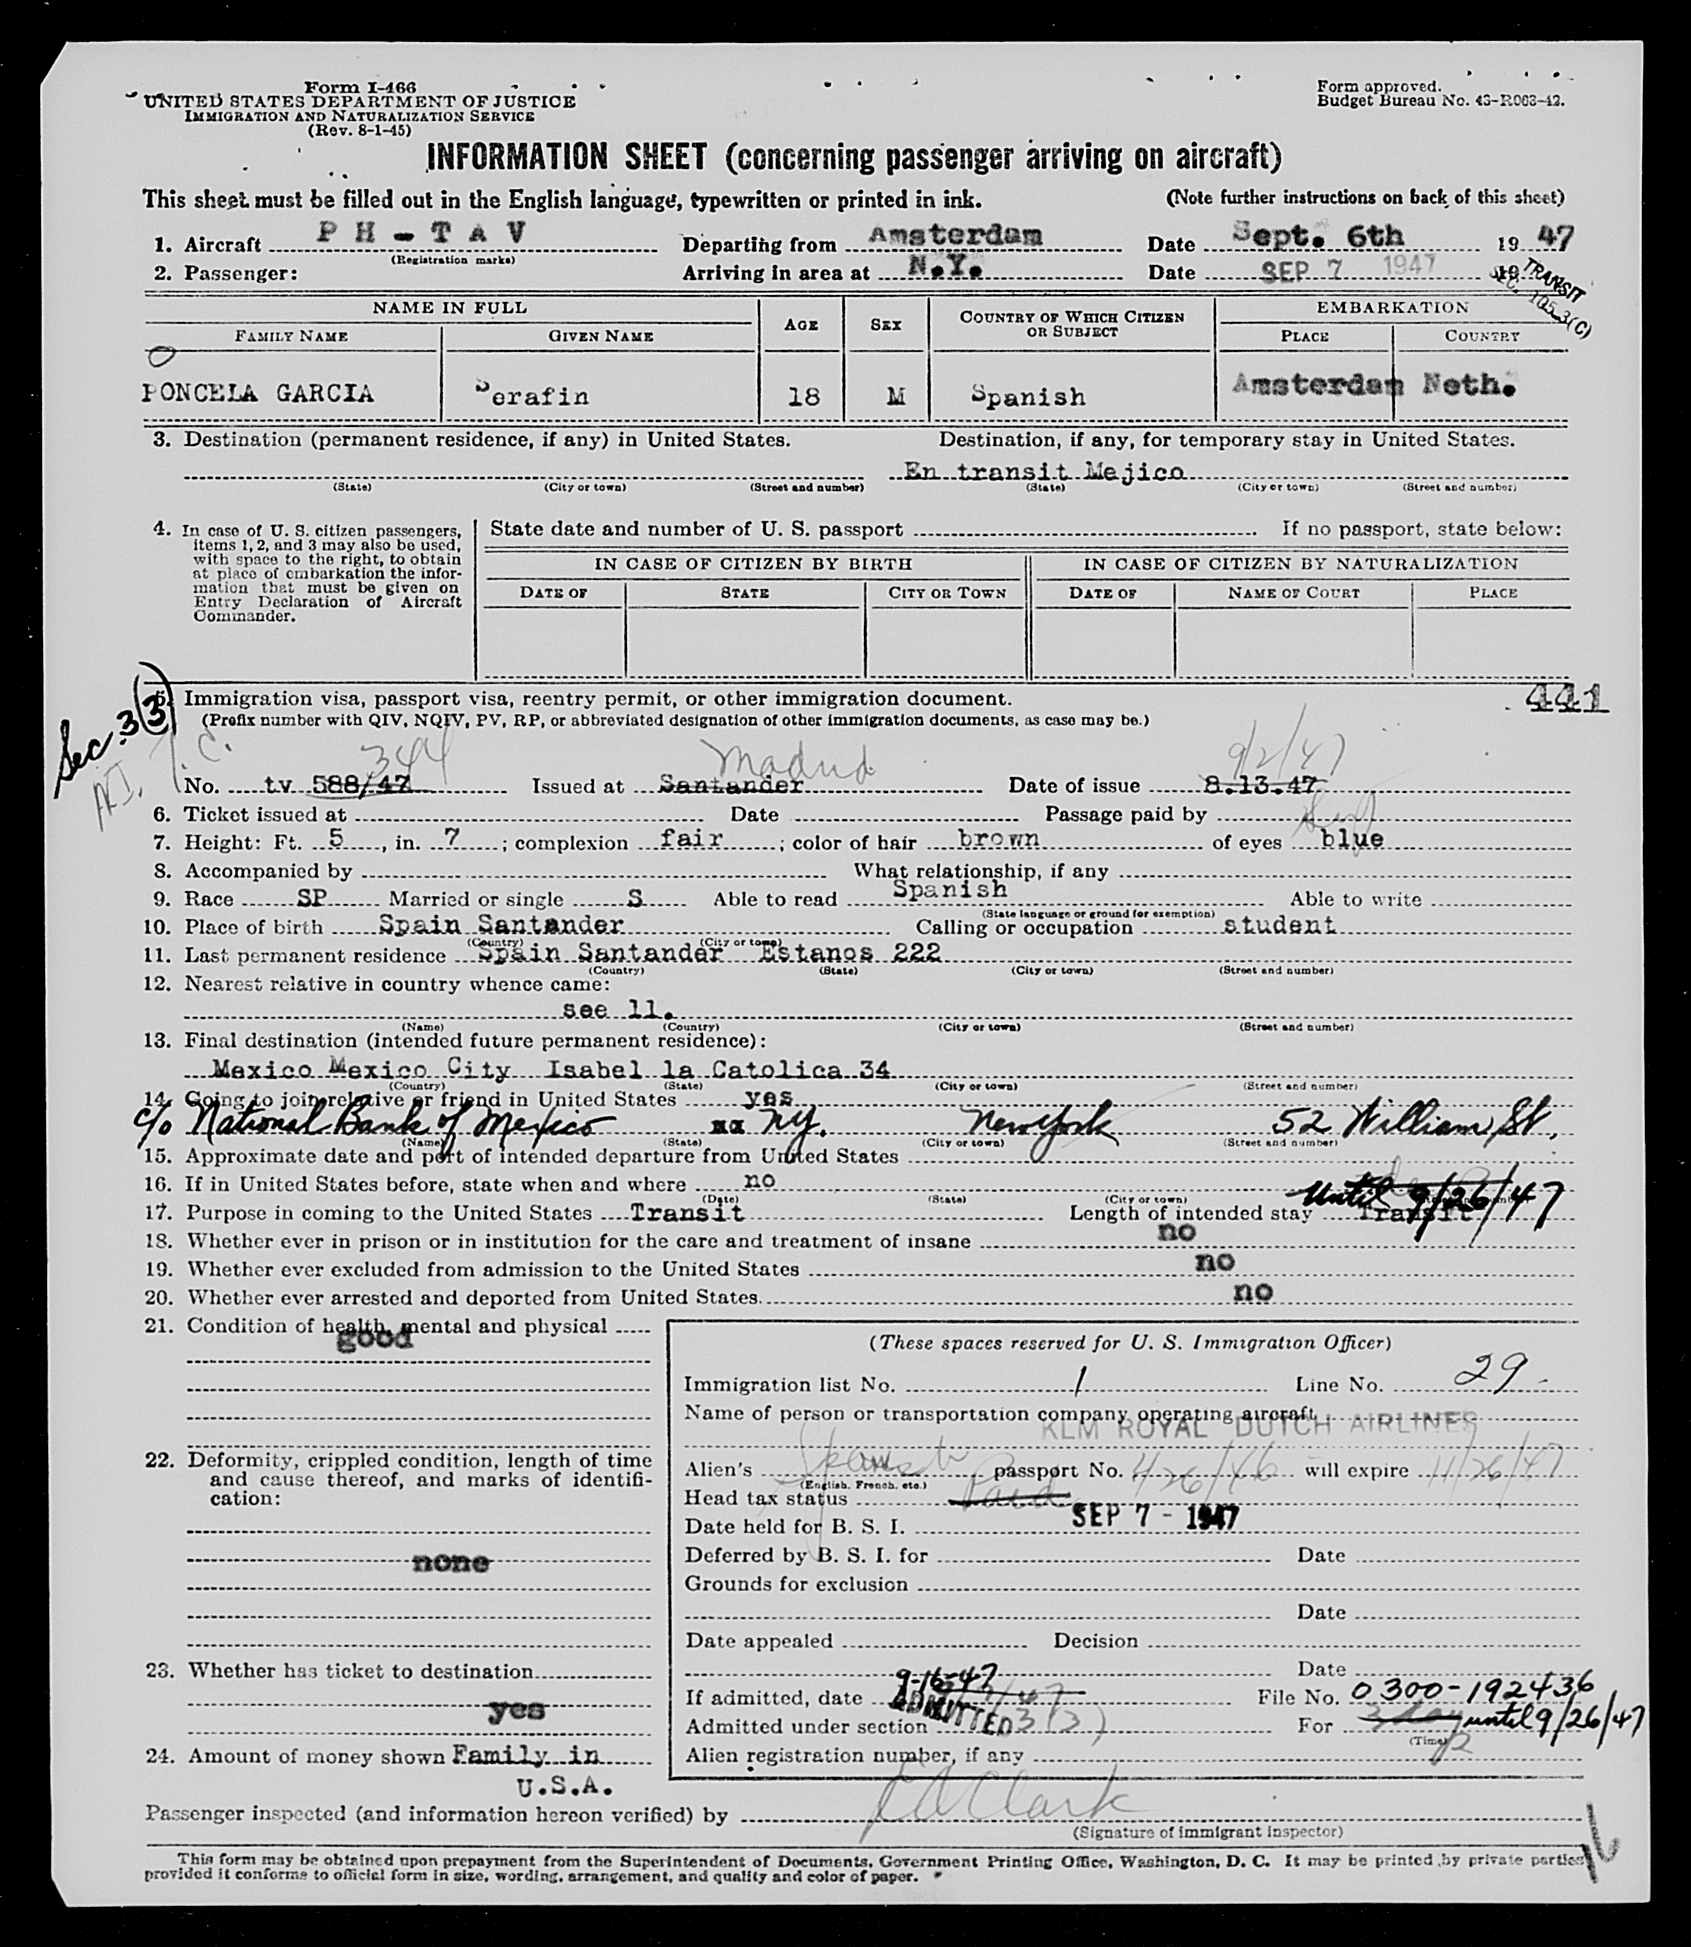 Form I-466
UNITED STATES DEPARTMENT OF JUSTICE
IMMIGRATION AND NATURALIZATION SERVICE
(Rev. 8-1-45)
Form approved.
Budget Bureau No. 43-R063-42.
INFORMATION SHEET (concerning passenger arriving on aircraft)
This sheet must be filled out in the English language, typewritten or printed in ink. (Note further instructions on back of this sheet)
1. Aircraft PH-TAV Departing from Amsterdam Date Sept. 6th 19 47
(Registration marks)
2. Passenger: Arriving in area at N.Y. Date SEP 7 1947 19
TRANSIT
SEC. 105.3(C)
NAME IN FULL AGE SEX COUNTRY OF WHICH CITIZEN OR SUBJECT EMBARKATION
FAMILY NAME GIVEN NAME PLACE COUNTRY
PONCELA GARCIA Serafin 18 M Spanish Amsterdam Neth.
3. Destination (permanent residence, if any) in United States. Destination, if any, for temporary stay in United States.
En transit Mejico
(State) (City or town) (Street and number) (State) (City or town) (Street and number)
4. In case of U. S. citizen passengers, items 1, 2, and 3 may also be used, with space to the right, to obtain at place of embarkation the information that must be given on Entry Declaration of Aircraft Commander.
State date and number of U. S. passport If no passport, state below:
IN CASE OF CITIZEN BY BIRTH IN CASE OF CITIZEN BY NATURALIZATION
DATE OF STATE CITY OR TOWN DATE OF NAME OF COURT PLACE
Sec. 3(3)
5. Immigration visa, passport visa, reentry permit, or other immigration document. 441
(Prefix number with QIV, NQIV, PV, RP, or abbreviated designation of other immigration documents, as case may be.)
344 Madrid 9/2/47
No. tv 588/47 Issued at Santander Date of issue 8.13.47
6. Ticket issued at Date Passage paid by
7. Height: Ft. 5, in. 7; complexion fair; color of hair brown of eyes blue
8. Accompanied by What relationship, if any
9. Race SP Married or single S Able to read Spanish Able to write
(State language or ground for exemption)
10. Place of birth Spain Santander Calling or occupation student
(Country) (City or town)
11. Last permanent residence Spain Santander Estanos 222
(Country) (State) (City or town) (Street and number)
12. Nearest relative in country whence came:
see 11.
(Name) (Country) (City or town) (Street and number)
13. Final destination (intended future permanent residence):
Mexico Mexico City Isabel la Catolica 34
(Country) (State) (City or town) (Street and number)
14. Going to join relative or friend in United States yes
c/o National Bank of Mexico NY. New York 52 William St.
(Name) (State) (City or town) (Street and number)
15. Approximate date and port of intended departure from United States
16. If in United States before, state when and where no
(Date) (State) (City or town)
until 9/26/47
17. Purpose in coming to the United States Transit Length of intended stay Transit
18. Whether ever in prison or in institution for the care and treatment of insane no
19. Whether ever excluded from admission to the United States no
20. Whether ever arrested and deported from United States. no
21. Condition of health, mental and physical
good
22. Deformity, crippled condition, length of time and cause thereof, and marks of identification:
none
23. Whether has ticket to destination
yes
24. Amount of money shown Family in
U.S.A.
(These spaces reserved for U. S. Immigration Officer)
Immigration list No. 1 Line No. 29
Name of person or transportation company operating aircraft
KLM ROYAL DUTCH AIRLINES
Alien's Spanish passport No. 426/46 will expire 11/26/47
(English, French, etc.)
Head tax status Paid
Date held for B. S. I. SEP 7 - 1947
Deferred by B. S. I. for Date
Grounds for exclusion
Date
Date appealed Decision
Date
9-16-47
If admitted, date File No. 0300-192436
ADMITTED
Admitted under section 3(3) For until 9/26/47
(Time)
Alien registration number, if any
Passenger inspected (and information hereon verified) by Clark
(Signature of immigrant inspector)
This form may be obtained upon prepayment from the Superintendent of Documents, Government Printing Office, Washington, D. C. It may be printed by private parties
provided it conforms to official form in size, wording, arrangement, and quality and color of paper.